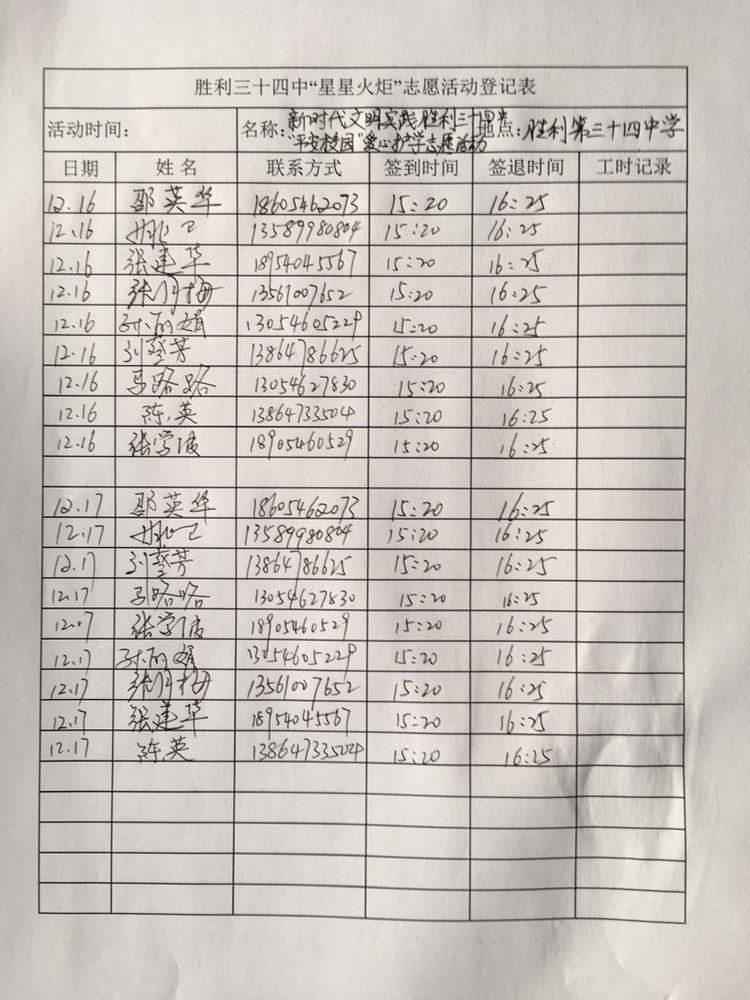 胜利三十四中“星星火炬”志愿活动登记表
活动时间: 名称: 新时代文明实践胜利三十四中 地点: 胜利第三十四中学
“平安校园”爱心护学志愿活动
日期 姓名 联系方式 签到时间 签退时间 工时记录
12.16 邵英华 18605462073 15:20 16:25
12.16 13589980804 15:20 16:25
12.16 张建华 18954045567 15:20 16:25
12.16 张 梅 13561007652 15:20 16:25
12.16 孙丽娟 13054605229 15:20 16:25
12.16 刘艺芳 13864786625 15:20 16:25
12.16 马路路 13054627830 15:20 16:25
12.16 陈英 13864733504 15:20 16:25
12.16 张学波 18905460529 15:20 16:25
12.17 邵英华 18605462073 15:20 16:25
12.17 13589980804 15:20 16:25
12.17 刘艺芳 13864786625 15:20 16:25
12.17 马路路 13054627830 15:20 16:25
12.17 张学波 18905460529 15:20 16:25
12.17 孙丽娟 13054605229 15:20 16:25
12.17 张 梅 13561007652 15:20 16:25
12.17 张建华 18954045567 15:20 16:25
12.17 陈英 13864733504 15:20 16:25